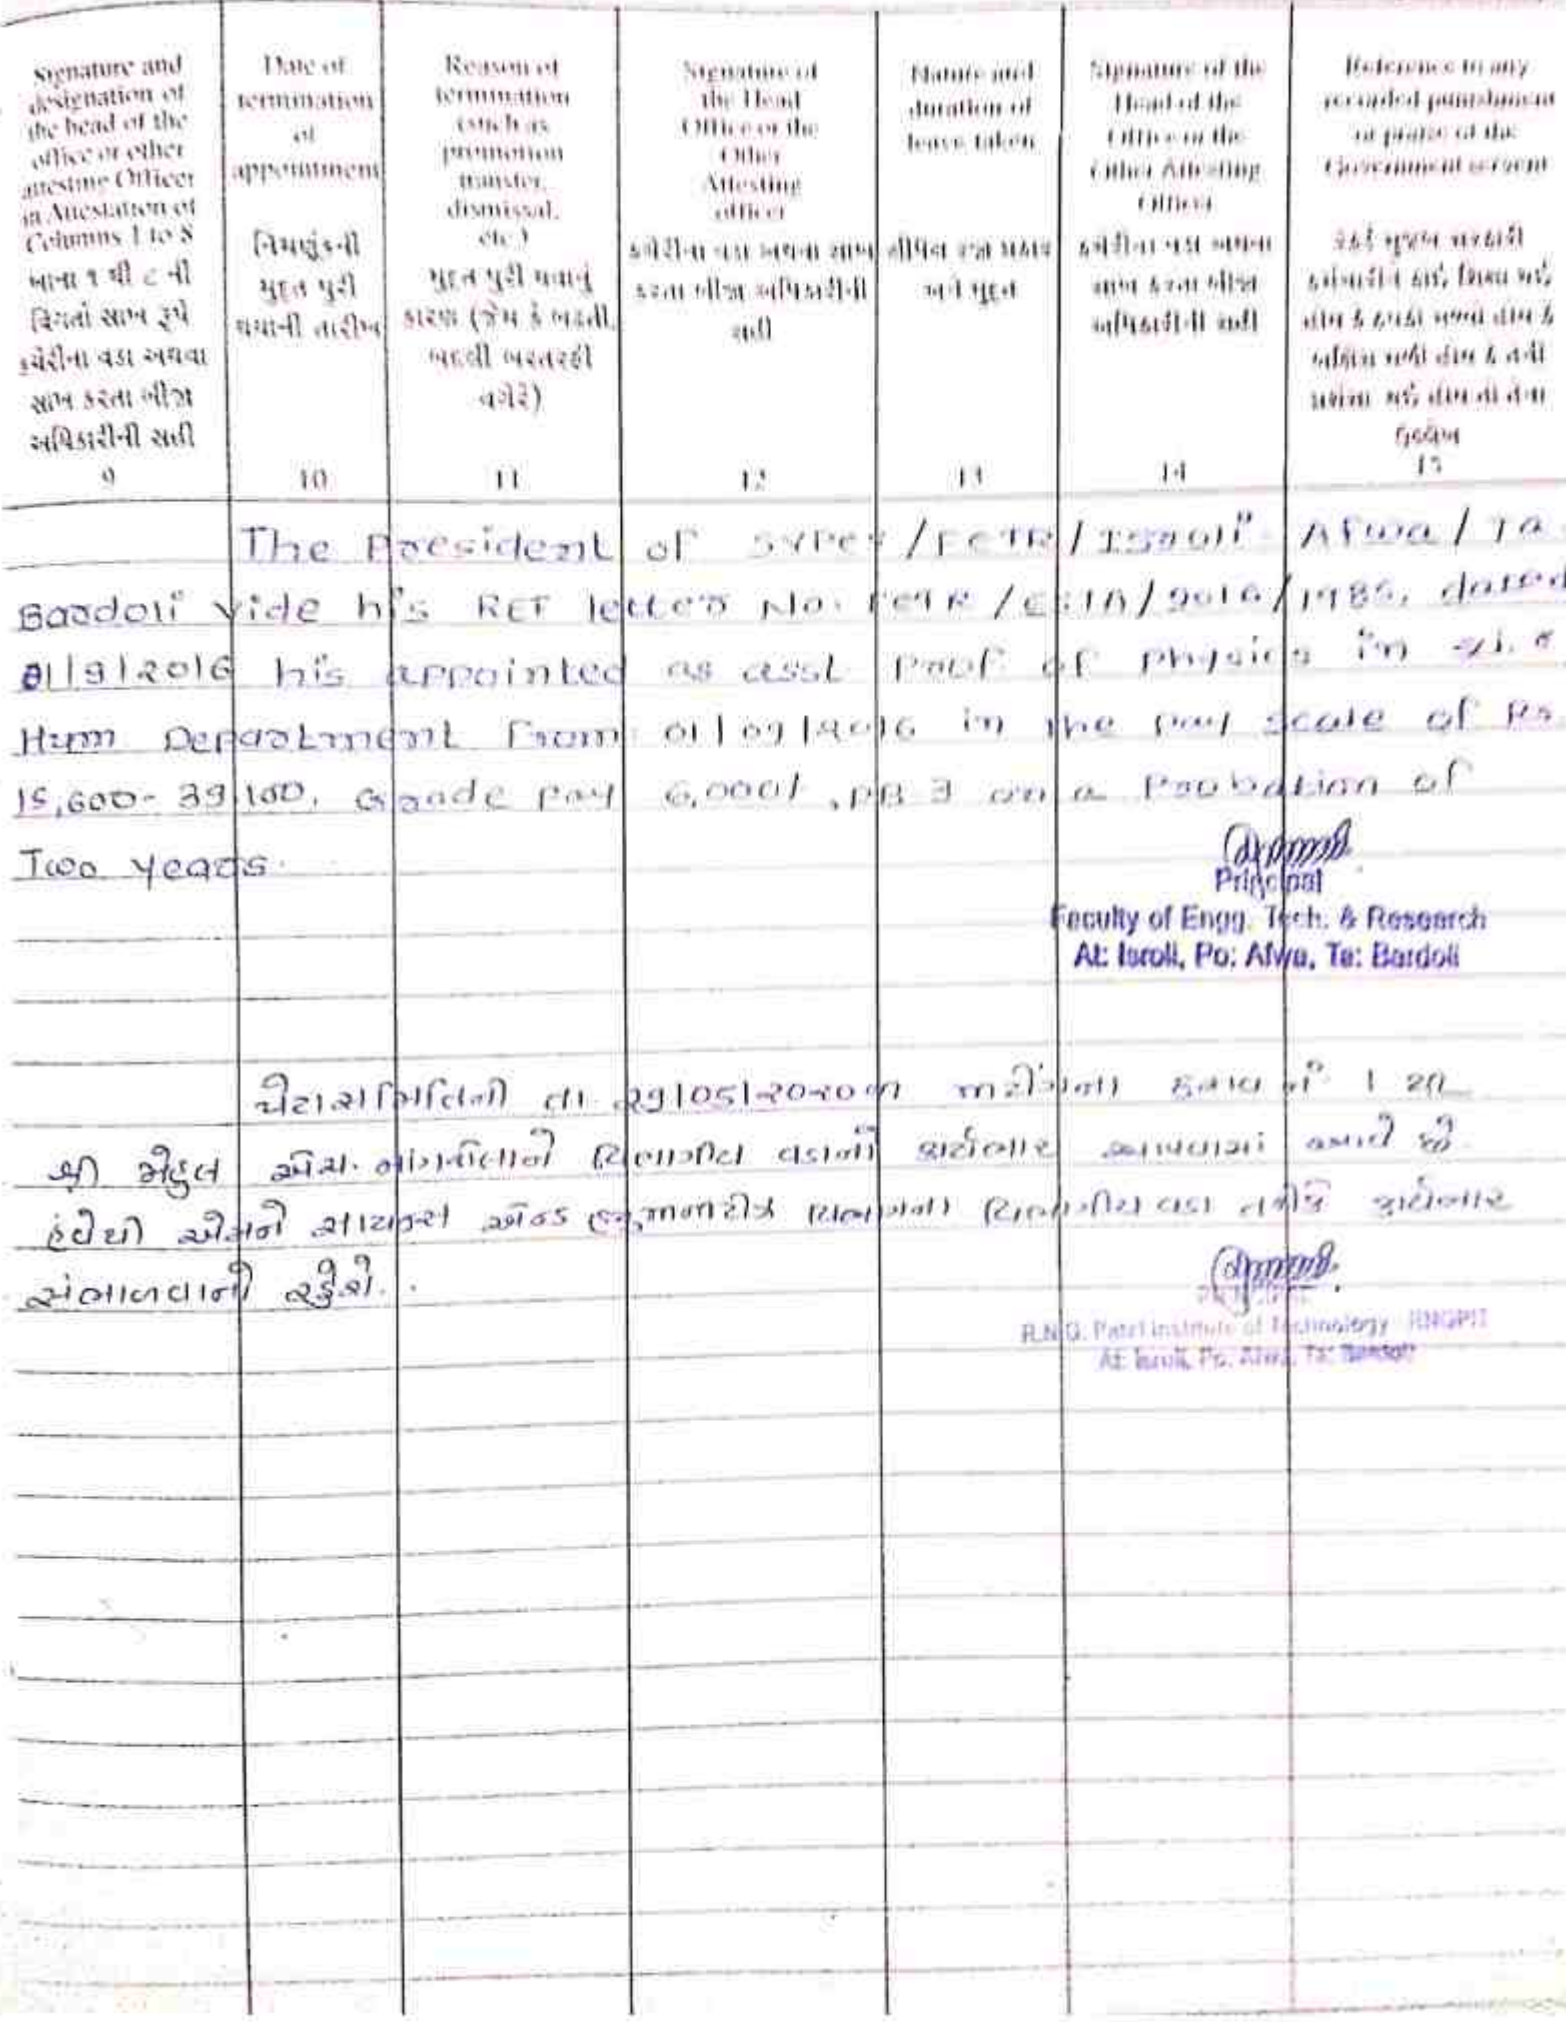 Signature and
designation of
the head of the
office or other
attesting Officer
in Attestation of
Columns 1 to 8
ખાના ૧ થી ૮ ની
વિગતો સાખ રૂપે
કચેરીના વડા અથવા
સાખ કરતા બીજા
અધિકારીની સહી
9
Date of
termination
of
appointment
નિમણુંકની
મુદ્દત પુરી
થયાની તારીખ
10
Reason of
termination
(such as
promotion
transfer,
dismissal,
etc.)
મુદ્દત પુરી થવાનું
કારણ (જેમ કે બઢતી,
બદલી બરતરફી
વગેરે)
11
Signature of
the Head
Office or the
Other
Attesting
officer
કચેરીના વડા અથવા સાખ
કરતા બીજા અધિકારીની
સહી
12
Nature and
duration of
leave taken
લીધેલ રજા પ્રકાર
અને મુદ્દત
13
Signature of the
Head of the
Office or the
Other Attesting
Officer
કચેરીના વડા અથવા
સાખ કરતા બીજા
અધિકારીની સહી
14
Reference to any
recorded punishment
or praise of the
Government servent
ઉલ્લેખ
15
The President of /FETR/Isroli Afwa/Ta
Bardoli vide his REF letter No. FETR/ESTA/2016/1985, dated
01/9/2016 his appointed as asst Prof of Physics in
Hum Department From 01/09/2016 in the pay scale of Rs
15,600-39,100, Grade pay 6,000/, PB 3 on a Probation of
Two years.
Principal
Faculty of Engg. Tech. & Research
At: Isroli, Po: Afwa, Ta: Bardoli
પેટાસમિતિની તા ૨૭/૦૫/૨૦૨૦ના મીટીંગના ઠરાવ નં 1
શ્રી મેહુલ એસ. વિભાગીય વડાનો કાર્યભાર આપવામાં આવે છે
હવેથી એમને સાયન્સ એન્ડ હ્યુમાનીટીઝ વિભાગના વિભાગીય વડા તરીકે કાર્યભાર
સંભાળવાનો રહેશે.
PRINCIPAL
R.N.G. Patel Institute of Technology RNGPIT
At: Isroli, Po: Afwa, Ta: Bardoli